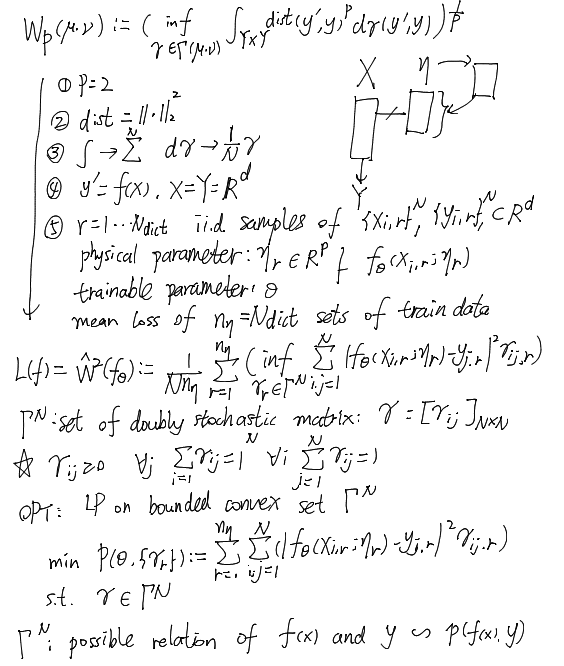 Wp(μ.ν) := ( inf γ∈Γ(μ.ν) ∫Y×Y dist(y',y)^p dγ(y',y) )^1/p
① P=2
② dist = ||·||₂²
③ ∫ → Σ^N dγ → 1/N γ
④ y' = f(x). X=Y=R^d
X η
Y
⑤ r=1···Ndict i.i.d samples of {Xi,r}^N, {Yi,r}^N ⊂ R^d
physical parameter: ηr ∈ R^p } fθ(Xi,r; ηr)
trainable parameter: θ
mean loss of nη = Ndict sets of train data
L(f) = Ŵ²(fθ) := 1/(N nη) Σ_{r=1}^{nη} ( inf γr∈Γ^N Σ_{i.j=1}^N |fθ(Xi,r; ηr) - yj,r|² γij,r )
Γ^N: set of doubly stochastic matrix: γ = [γij]N×N
☆ γij ≥ 0 ∀j Σ_{i=1}^N γij = 1 ∀i Σ_{j=1}^N γij = 1
OPT: LP on bounded convex set Γ^N
min P(θ, {γr}) := Σ_{r=1}^{nη} Σ_{i,j=1}^N (|fθ(Xi,r; ηr) - yj,r|² γij,r)
s.t. γ ∈ Γ^N
Γ^N: possible relation of f(x) and y ∽ p(f(x), y)